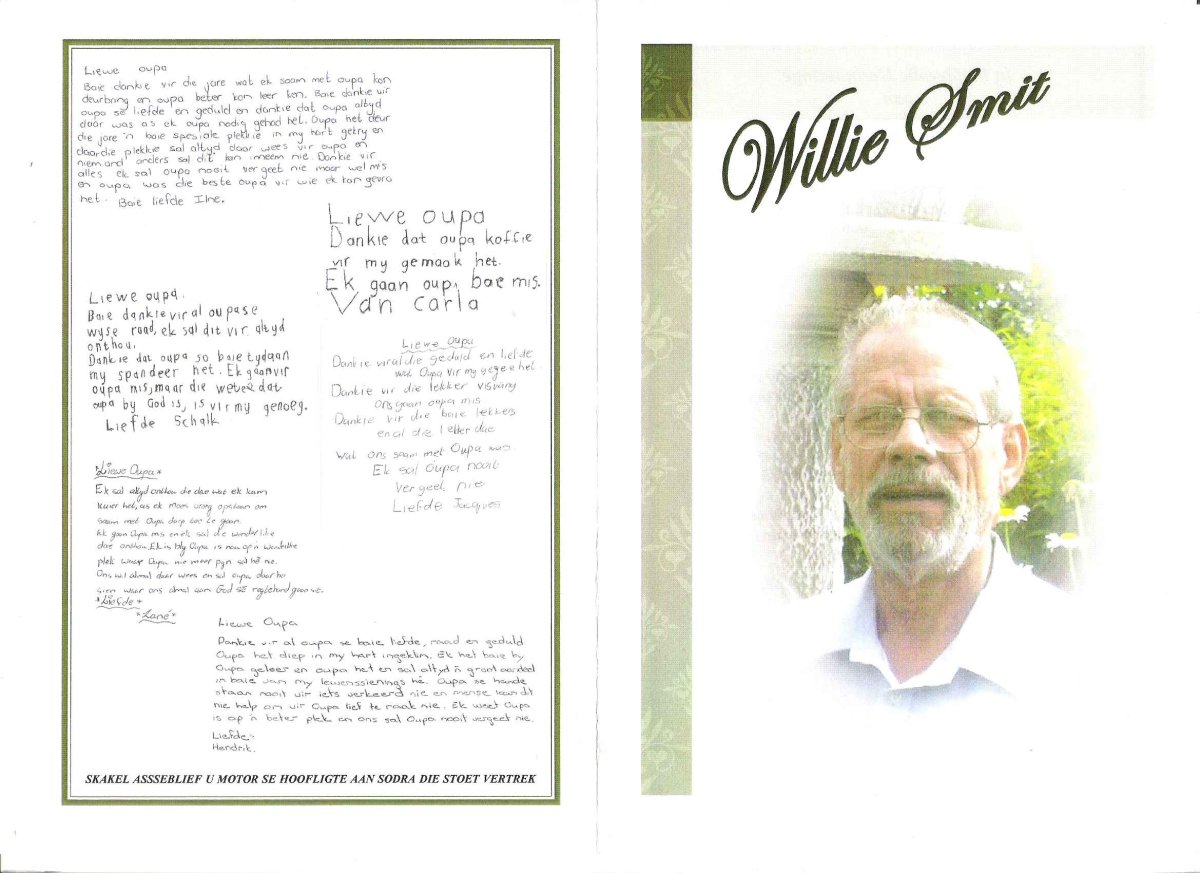 Liewe oupa
Baie dankie vir die jare wat ek saam met oupa kon
deurbring en oupa beter kon leer ken. Baie dankie vir
oupa se liefde en geduld en dankie dat oupa altyd
daar was as ek oupa nodig gehad het. Oupa het deur
die jare 'n baie spesiale plekkie in my hart gekry en
daardie plekkie sal altyd daar wees vir oupa en
niemand anders sal dit kan inneem nie. Dankie vir
alles ek sal oupa nooit vergeet nie maar wel mis
en oupa was die beste oupa vir wie ek kon gevra
het. Baie liefde Ilne.
Liewe oupa
Dankie dat oupa koffie
vir my gemaak het.
Ek gaan oupa bae mis.
Van carla
Liewe oupa.
Baie dankie vir al oupa se
wyse raad, ek sal dit vir altyd
onthou.
Dankie dat oupa so baie tyd aan
my spandeer het. Ek gaan vir
oupa mis, maar die wete dat
oupa by God is, is vir my genoeg.
Liefde Schalk
Liewe Oupa
Dankie vir al die geduld en liefde
wat Oupa vir my gegee het.
Dankie vir die lekker visvang
Ons gaan oupa mis
Dankie vir die baie lekkers
en al die lekker dae
wat ons saam met Oupa was.
Ek sal Oupa nooit
vergeet nie
Liefde Jacques
*Liewe Oupa*
Ek sal altyd onthou die dae wat ek kom
kuier het, as ek moes vroeg opstaan om
saam met Oupa dorp toe te gaan.
Ek gaan Oupa mis en ek sal die wonderlike
dae onthou. Ek is bly Oupa is nou op 'n wonderlike
plek waar Oupa nie meer pyn sal hê nie.
Ons wil almal daar wees en sal oupa daar bo
sien waar ons almal aan God se regterhand gaan sit.
*Liefde*
*Lané*
Liewe Oupa
Dankie vir al oupa se baie liefde, raad en geduld
Oupa het diep in my hart ingeklim. Ek het baie by
Oupa geleer en oupa het en sal altyd 'n groot aandeel
in baie van my lewenssienings hê. Oupa se hande
staan nooit vir iets verkeerd nie en mense kan dit
nie help om vir Oupa lief te raak nie. Ek weet Oupa
is op 'n beter plek en ons sal Oupa nooit vergeet nie.
Liefde
Hendrik.
SKAKEL ASSSEBLIEF U MOTOR SE HOOFLIGTE AAN SODRA DIE STOET VERTREK
Willie Smit